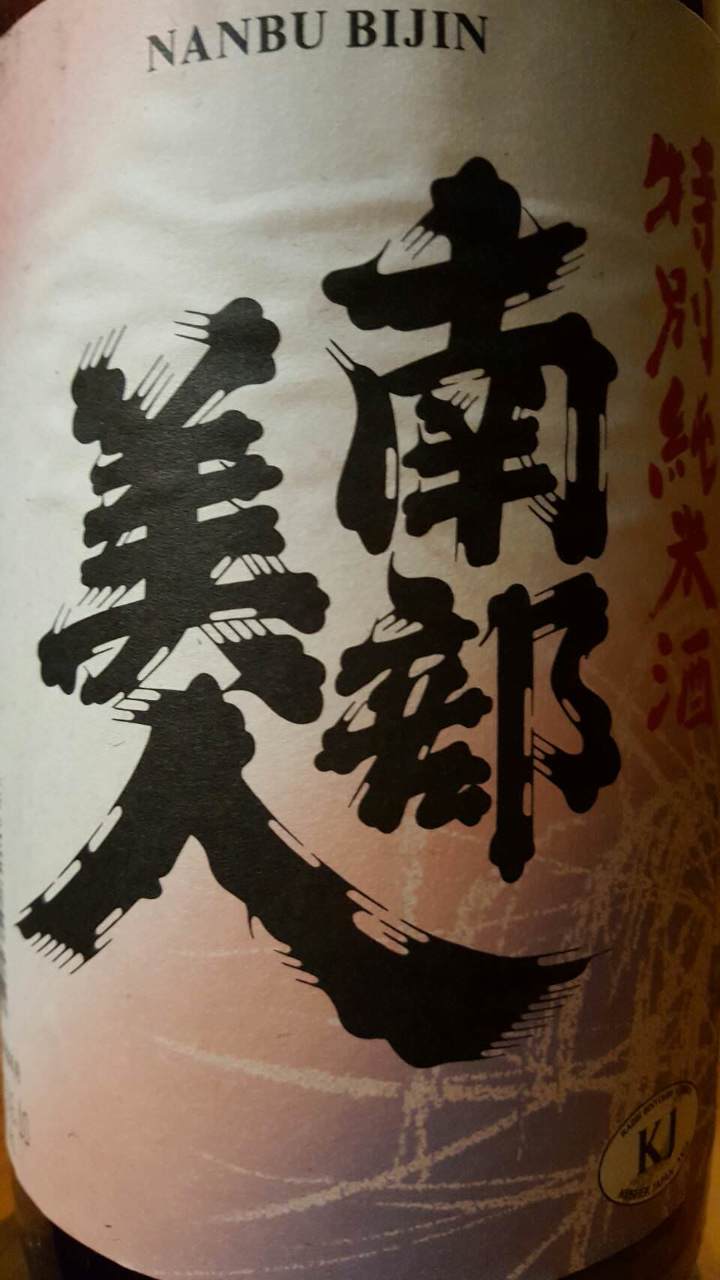 NANBU BIJIN
特別純米酒
南部
美人
KJ